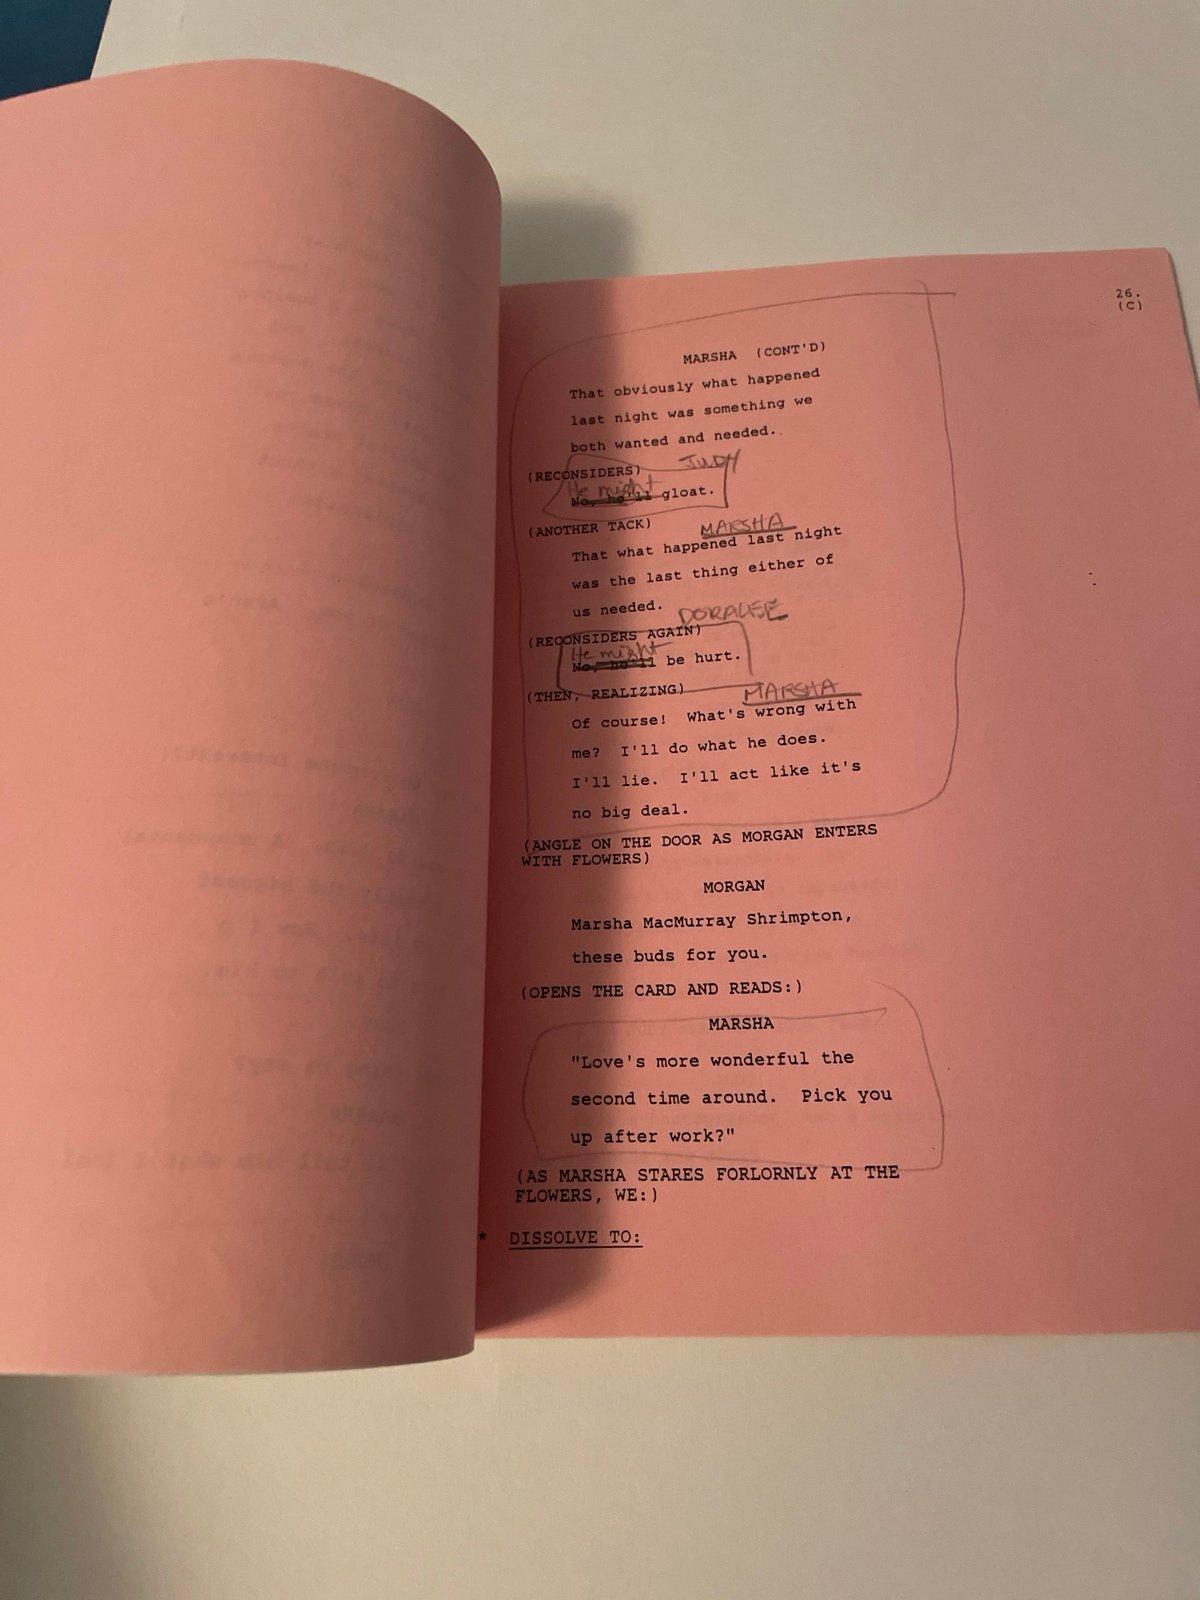 26.
(C)
MARSHA (CONT'D)
That obviously what happened
last night was something we
both wanted and needed.
JUDY
(RECONSIDERS)
He might
No, he'll gloat.
(ANOTHER TACK)
MARSHA
That what happened last night
was the last thing either of
us needed.
DORALEE
(RECONSIDERS AGAIN)
He might
No, he'll be hurt.
(THEN, REALIZING)
MARSHA
Of course! What's wrong with
me? I'll do what he does.
I'll lie. I'll act like it's
no big deal.
(ANGLE ON THE DOOR AS MORGAN ENTERS
WITH FLOWERS)
MORGAN
Marsha MacMurray Shrimpton,
these buds for you.
(OPENS THE CARD AND READS:)
MARSHA
"Love's more wonderful the
second time around. Pick you
up after work?"
(AS MARSHA STARES FORLORNLY AT THE
FLOWERS, WE:)
* DISSOLVE TO: